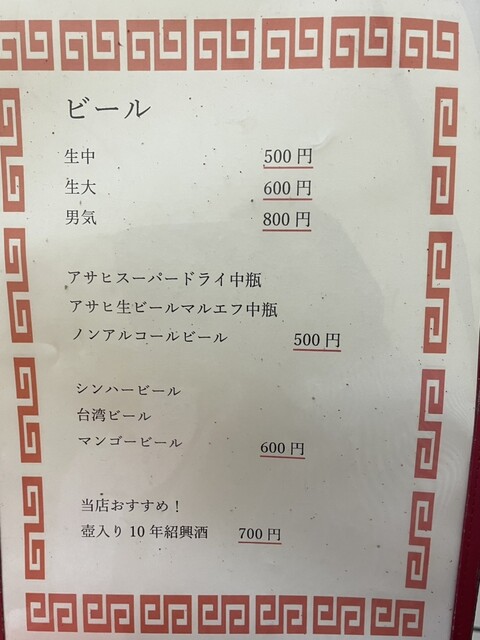 ビール
生中 500円
生大 600円
男気 800円
アサヒスーパードライ中瓶
アサヒ生ビールマルエフ中瓶
ノンアルコールビール 500円
シンハービール
台湾ビール
マンゴービール 600円
当店おすすめ！
壺入り10年紹興酒 700円